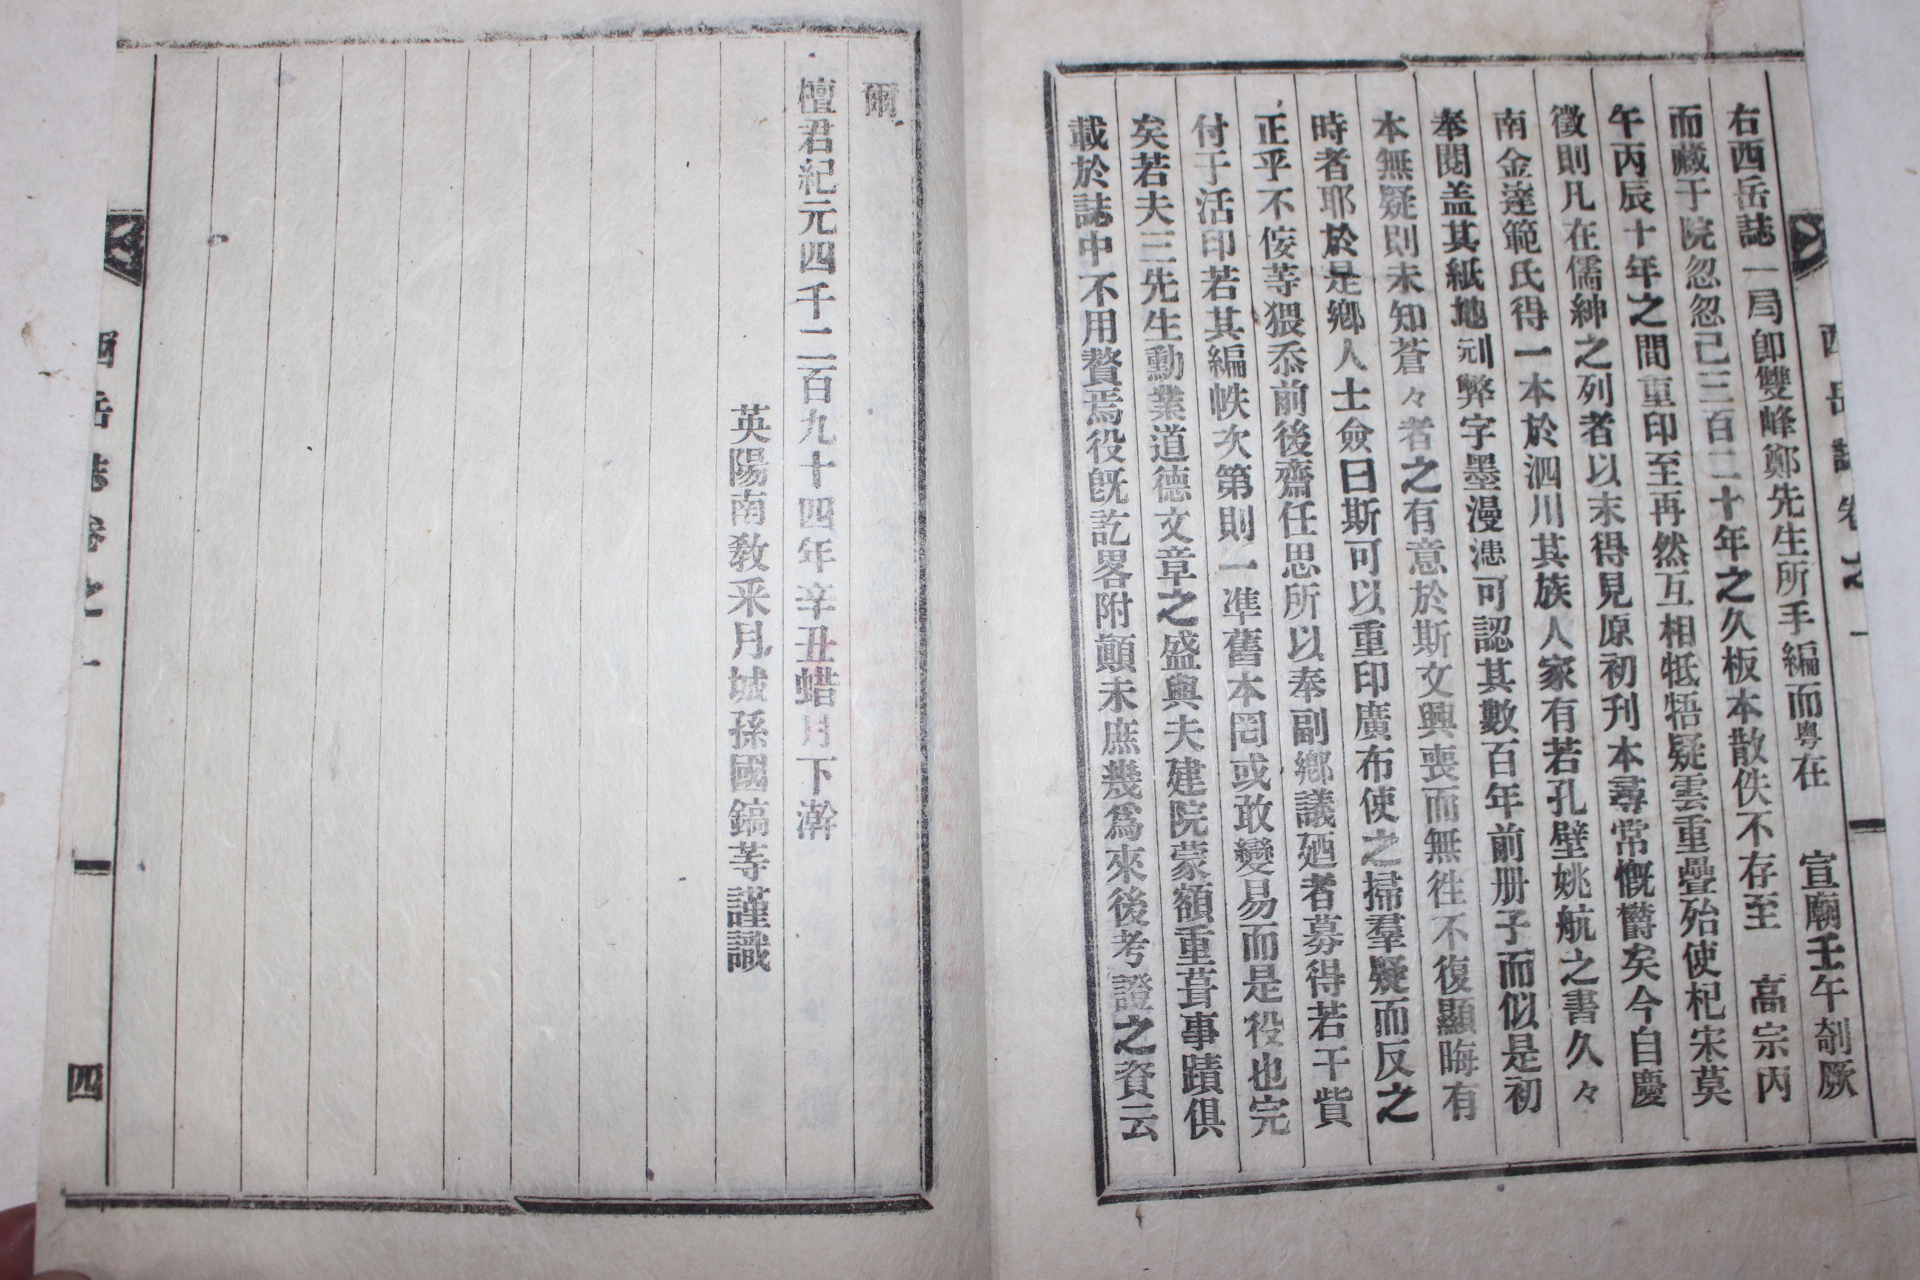 右西岳誌一局卽雙峰鄭先生所手編而粤在 宣廟壬午剞厥
而藏于院忽忽已三百二十年之久板本散佚不存至 高宗丙
午丙辰十年之間重印至再然互相牴牾疑雲重疊殆使杞宋莫
徵則凡在儒紳之列者以未得見原初刊本尋常慨欝矣今自慶
南金達範氏得一本於泗川其族人家有若孔壁姚航之書久々
奉閱盖其紙地刓弊字墨漫漶可認其數百年前册子而似是初
本無疑則未知蒼々者之有意於斯文興喪而無徃不復顯晦有
時者耶於是鄕人士僉曰斯可以重印廣布使之掃羣疑而反之
正乎不侫等猥忝前後齋任思所以奉副鄕議廼者募得若干貲
付于活印若其編帙次第則一準舊本罔或敢變易而是役也完
矣若夫三先生勳業道德文章之盛與夫建院蒙額重葺事蹟俱
載於誌中不用贅焉役旣訖畧附顚末庶幾爲來後考證之資云
爾
檀君紀元四千二百九十四年辛丑蜡月下澣
英陽南敎釆月城孫國鎬等謹識
西岳誌卷之一
四
西岳誌卷之一